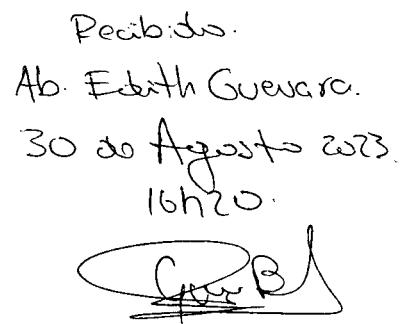 Recibido.
Ab. Edith Guevara.
30 de Agosto 2023.
16h20.